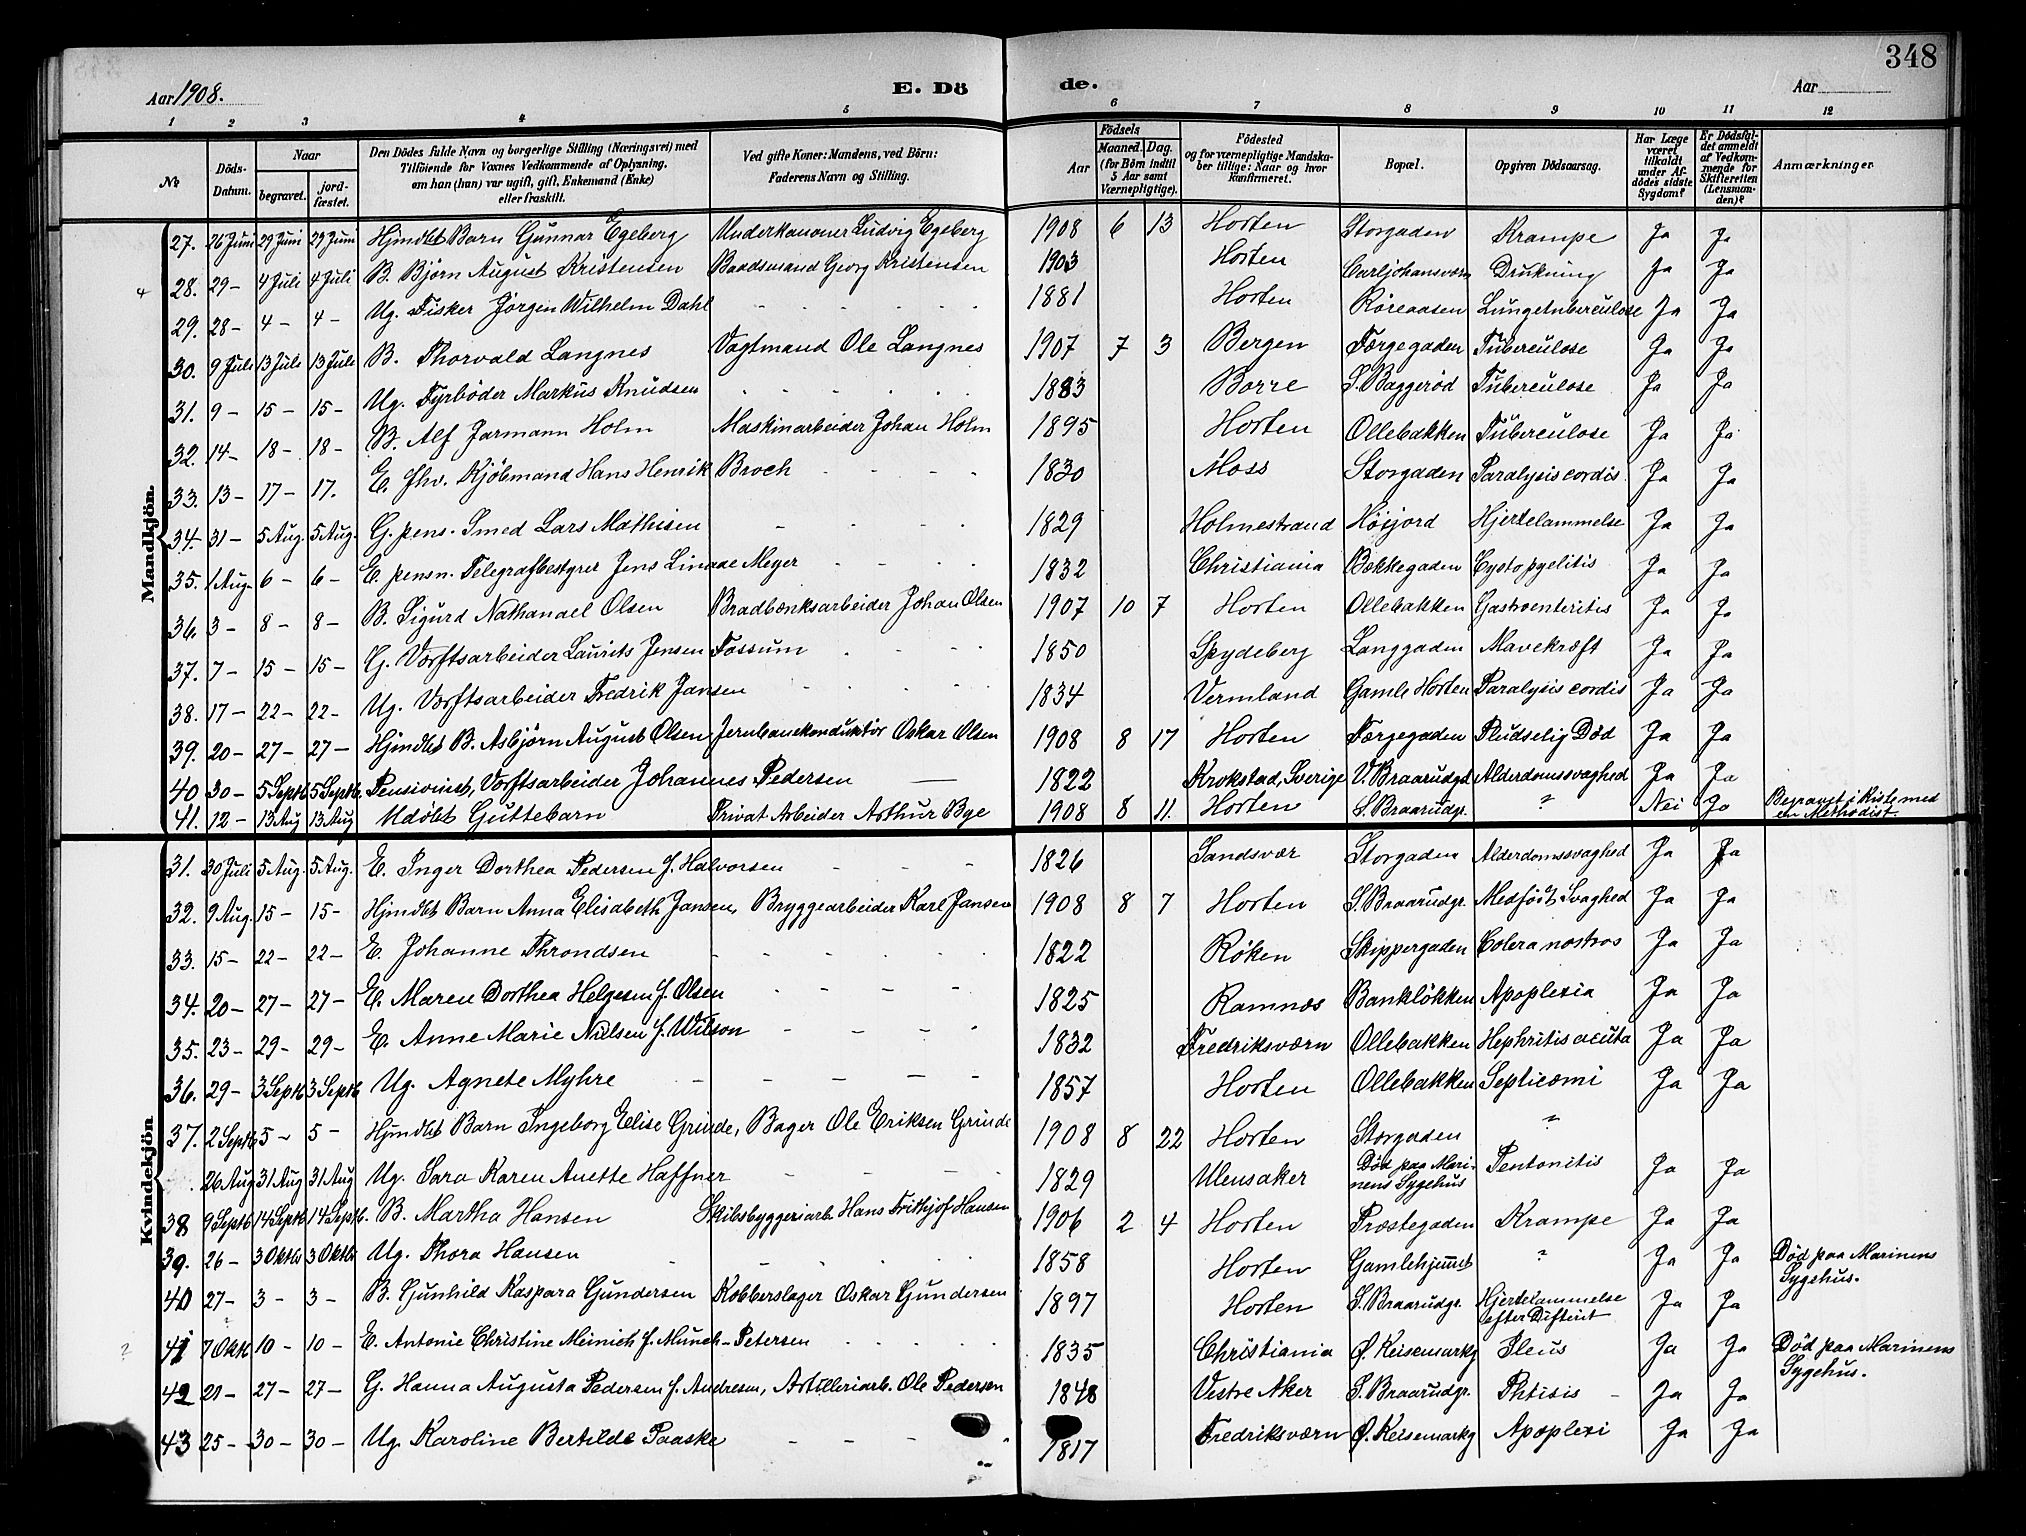 348
Aar 1908. E. Dö de. Aar
1 2 3 4 5 6 7 8 9 10 11 12
№ Döds-Datum. Naar begravet. jordfæstet. Den Dödes fulde Navn og borgerlige Stilling (Næringsvei) med Tilföiende for Voxnes Vedkommende af Oplysning, om han (hun) var ugift, gift, Enkemand (Enke) eller fraskilt. Ved gifte Koner: Mandens, ved Börn: Faderens Navn og Stilling. Födsels Aar Maaned. Dag. (for Börn indtil 5 Aar samt Værnepligtige). Födested og for værnepligtige Mandskaber tillige: Naar og hvor konfirmeret. Bopæl. Opgiven Dödsaarsag. Har Læge været tilkaldt under Afdödes sidste Sygdom? Er Dödsfaldet anmeldt af Vedkommende for Skifteretten (Lensmanden)? Anmærkninger.
Mandkjön.
27. 26 Juni 29 Juni 29 Juni Hjmdbt Barn Gunnar Egeberg Underkanoner Ludvig Egeberg 1908 6 13 Horten Storgaden Krampe Ja Ja
28. 29 - 4 Juli 4 Juli B. Björn August Kristensen Baadsmand Georg Kristensen 1903 Horten Carljohansværn Drukning Ja Ja
29. 28 - 4 - 4 - Ug. Fisker Jörgen Wilhelm Dahl 1881 Horten Röreaasen Lungetuberculose Ja Ja
30. 9 Juli 13 Juli 13 Juli B. Thorvald Langnes Vagtmand Ole Langnes 1907 7 3 Bergen Færgegaden Tuberculose Ja Ja
31. 9 - 15 - 15 - Ug. Fyrböder Markus Knudsen 1883 Borre S. Baggeröd Tuberculose Ja Ja
32. 14 - 18 - 18 - B. Alf Jarmann Holm Maskinarbeider Johan Holm 1895 Horten Ollebakken Tuberculose Ja Ja
33. 13 - 17 - 17. E. fhv. Kjöbmand Hans Henrik Broch 1830 Moss Storgaden Paralysis cordis Ja Ja
34. 31 - 5 Aug. 5 Aug. G. pens. Smed Lars Mathisen 1829 Holmestrand Höijord Hjertelammelse Ja Ja
35. 1 Aug. 6 - 6 - E. pensn. Telegrafbestyrer Jens Linaae Meyer 1832 Christiania Bækkegaden Cystopyelitis Ja Ja
36. 3 - 8 - 8 - B. Sigurd Nathanael Olsen Bradbænksarbeider Johan Olsen 1907 10 7 Horten Ollebakken Gastroenteritis Ja Ja
37. 7 - 15 - 15 - G. Værftsarbeider Laurits Jensen Fossum 1850 Spydeberg Langgaden Mavekræft Ja Ja
38. 17 - 22 - 22 - Ug. Værftsarbeider Fredrik Jansen 1834 Vermland Gamle Horten Paralysis cordis Ja Ja
39. 20 - 27 - 27 - Hjmdbt B. Asbjörn August Olsen Jernbanekonduktör Oskar Olsen 1908 8 17 Horten Færgegaden Pludselig Död Ja Ja
40 30 - 5 Septb. 5 Septb. Pensionist, Værftsarbeider Johannes Pedersen 1822 Krokstad, Sverige V. Braarudgd Alderdomssvaghed Ja Ja
41. 12 - 13 Aug 13 Aug Udöbt Guttebarn Privat Arbeider Arthur Bye 1908 8 11. Horten S. Braarudgr. ? Nei Ja Begravet i Kiste med en Methodist.
Kvindekjön
31. 30 Juli 5 Aug. 5 Aug. E. Inger Dorthea Pedersen f. Halvorsen 1826 Sandsvær Storgaden Alderdomssvaghed Ja Ja
32. 9 Aug. 15 - 15 - Hjmdbt Barn Anna Elisabeth Jansen, Bryggearbeider Karl Jansen 1908 8 7 Horten S. Braarudgr. Medfödt Svaghed Ja Ja
33. 15 - 22 - 22 - E. Johanne Throndsen 1822 Röken Skippergaden Colera nostras Ja Ja
34. 20 - 27 - 27 - E. Maren Dorthea Helgesen f. Olsen 1825 Ramnæs Banklökken Apoplexia Ja Ja
35. 23 - 29 - 29 - E. Anne Marie Nielsen f. Wilson 1832 Fredriksværn Ollebakken Nephritis acuta Ja Ja
36. 29 - 3 Septb 3 Septb Ug. Agnete Myhre 1857 Horten Ollebakken Septicæmi Ja Ja
37. 2 Septb 5 - 5 - Hjmdbt Barn Ingeborg Elise Grinde, Bager Ole Eriksen Grinde 1908 8 22 Horten Storgaden ?
26 Aug 31 Aug 31 Aug Ug. Sara Karen Anette Haffner 1829 Ulensaker Död paa Marinens Sygehus Peritonitis Ja Ja
38 9 Septb 14 Septb 14 Septb. B. Martha Hansen Skibsbyggeriarb. Hans Frithjof Hansen 1906 2 4 Horten Præstegaden Krampe Ja Ja
39. 26 - 3 Oktb 3 Oktb Ug. Thora Hansen 1858 Horten Gamlehjemmet ? Ja Ja Död paa Marinens Sygehus.
40 27 - 3 - 3 - B. Gunhild Kaspara Gundersen Kobberslager Oskar Gundersen 1897 Horten S. Braarudgr. Hjertelammelse efter Difterit Ja Ja
41 7 Okt 10 - 10 - E. Antonie Christine Meinich f. Munch-Petersen 1835 Christiania Ø. Keisemarkg Ileus Ja Ja Död paa Marinens Sygehus.
42 21 - 27 - 27 - G. Hanna Augusta Pedersen f. Andresen, Artilleriarb. Ole Pedersen 1848 Vestre Aker S. Braarudgr. Phtisis - Ja Ja
43 25 - 30 - 30 - Ug. Karoline Bertilde Paaske 1817 Fredriksværn Ø. Keisemarkg Apoplexi Ja Ja